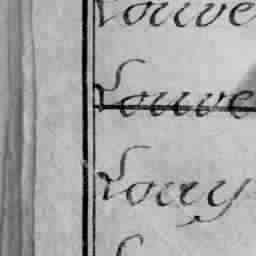 Louve
Louve
Loay